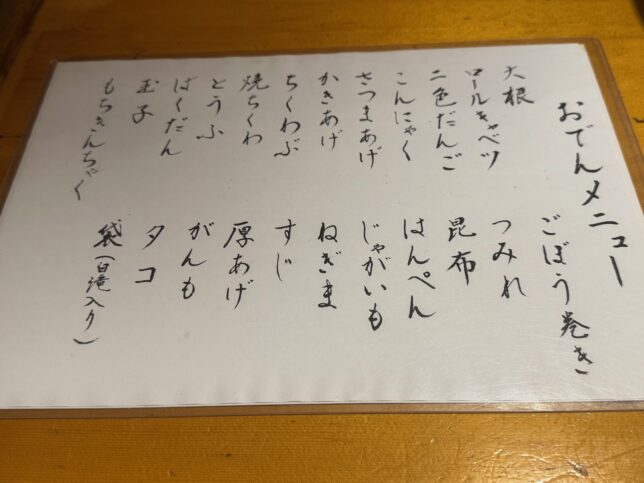 おでんメニュー
大根
ロールキャベツ
二色だんご
こんにゃく
さつまあげ
かきあげ
ちくわぶ
焼ちくわ
とうふ
ばくだん
玉子
もちきんちゃく
ごぼう巻き
つみれ
昆布
はんぺん
じゃがいも
ねぎま
すじ
厚あげ
がんも
タコ
袋(白滝入り)